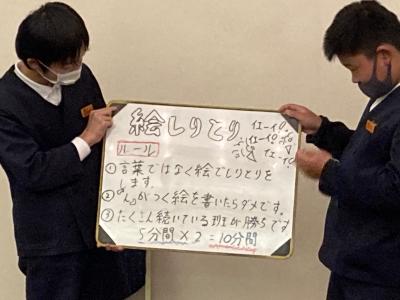 絵しりとり
イエーイ!
イエーイ!
イエーイ!
ルール
① 言葉ではなく絵でしりとりを
します。
②『ん』がつく絵を書いたらダメです。
③ たくさん続いている班が勝ちです
5分間×2=10分間